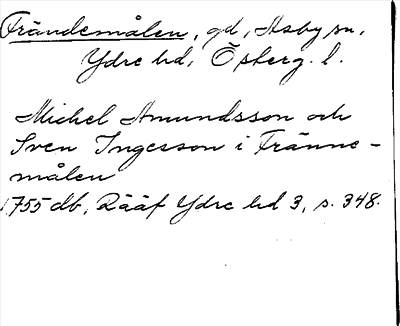 Frändemålen, gd, Asby sn,
Ydre hd, Österg. l.
Michel Amundsson och
Sven Ingesson i Fränne-
målen
1755 db, Rääf Ydre hd 3, s. 348.